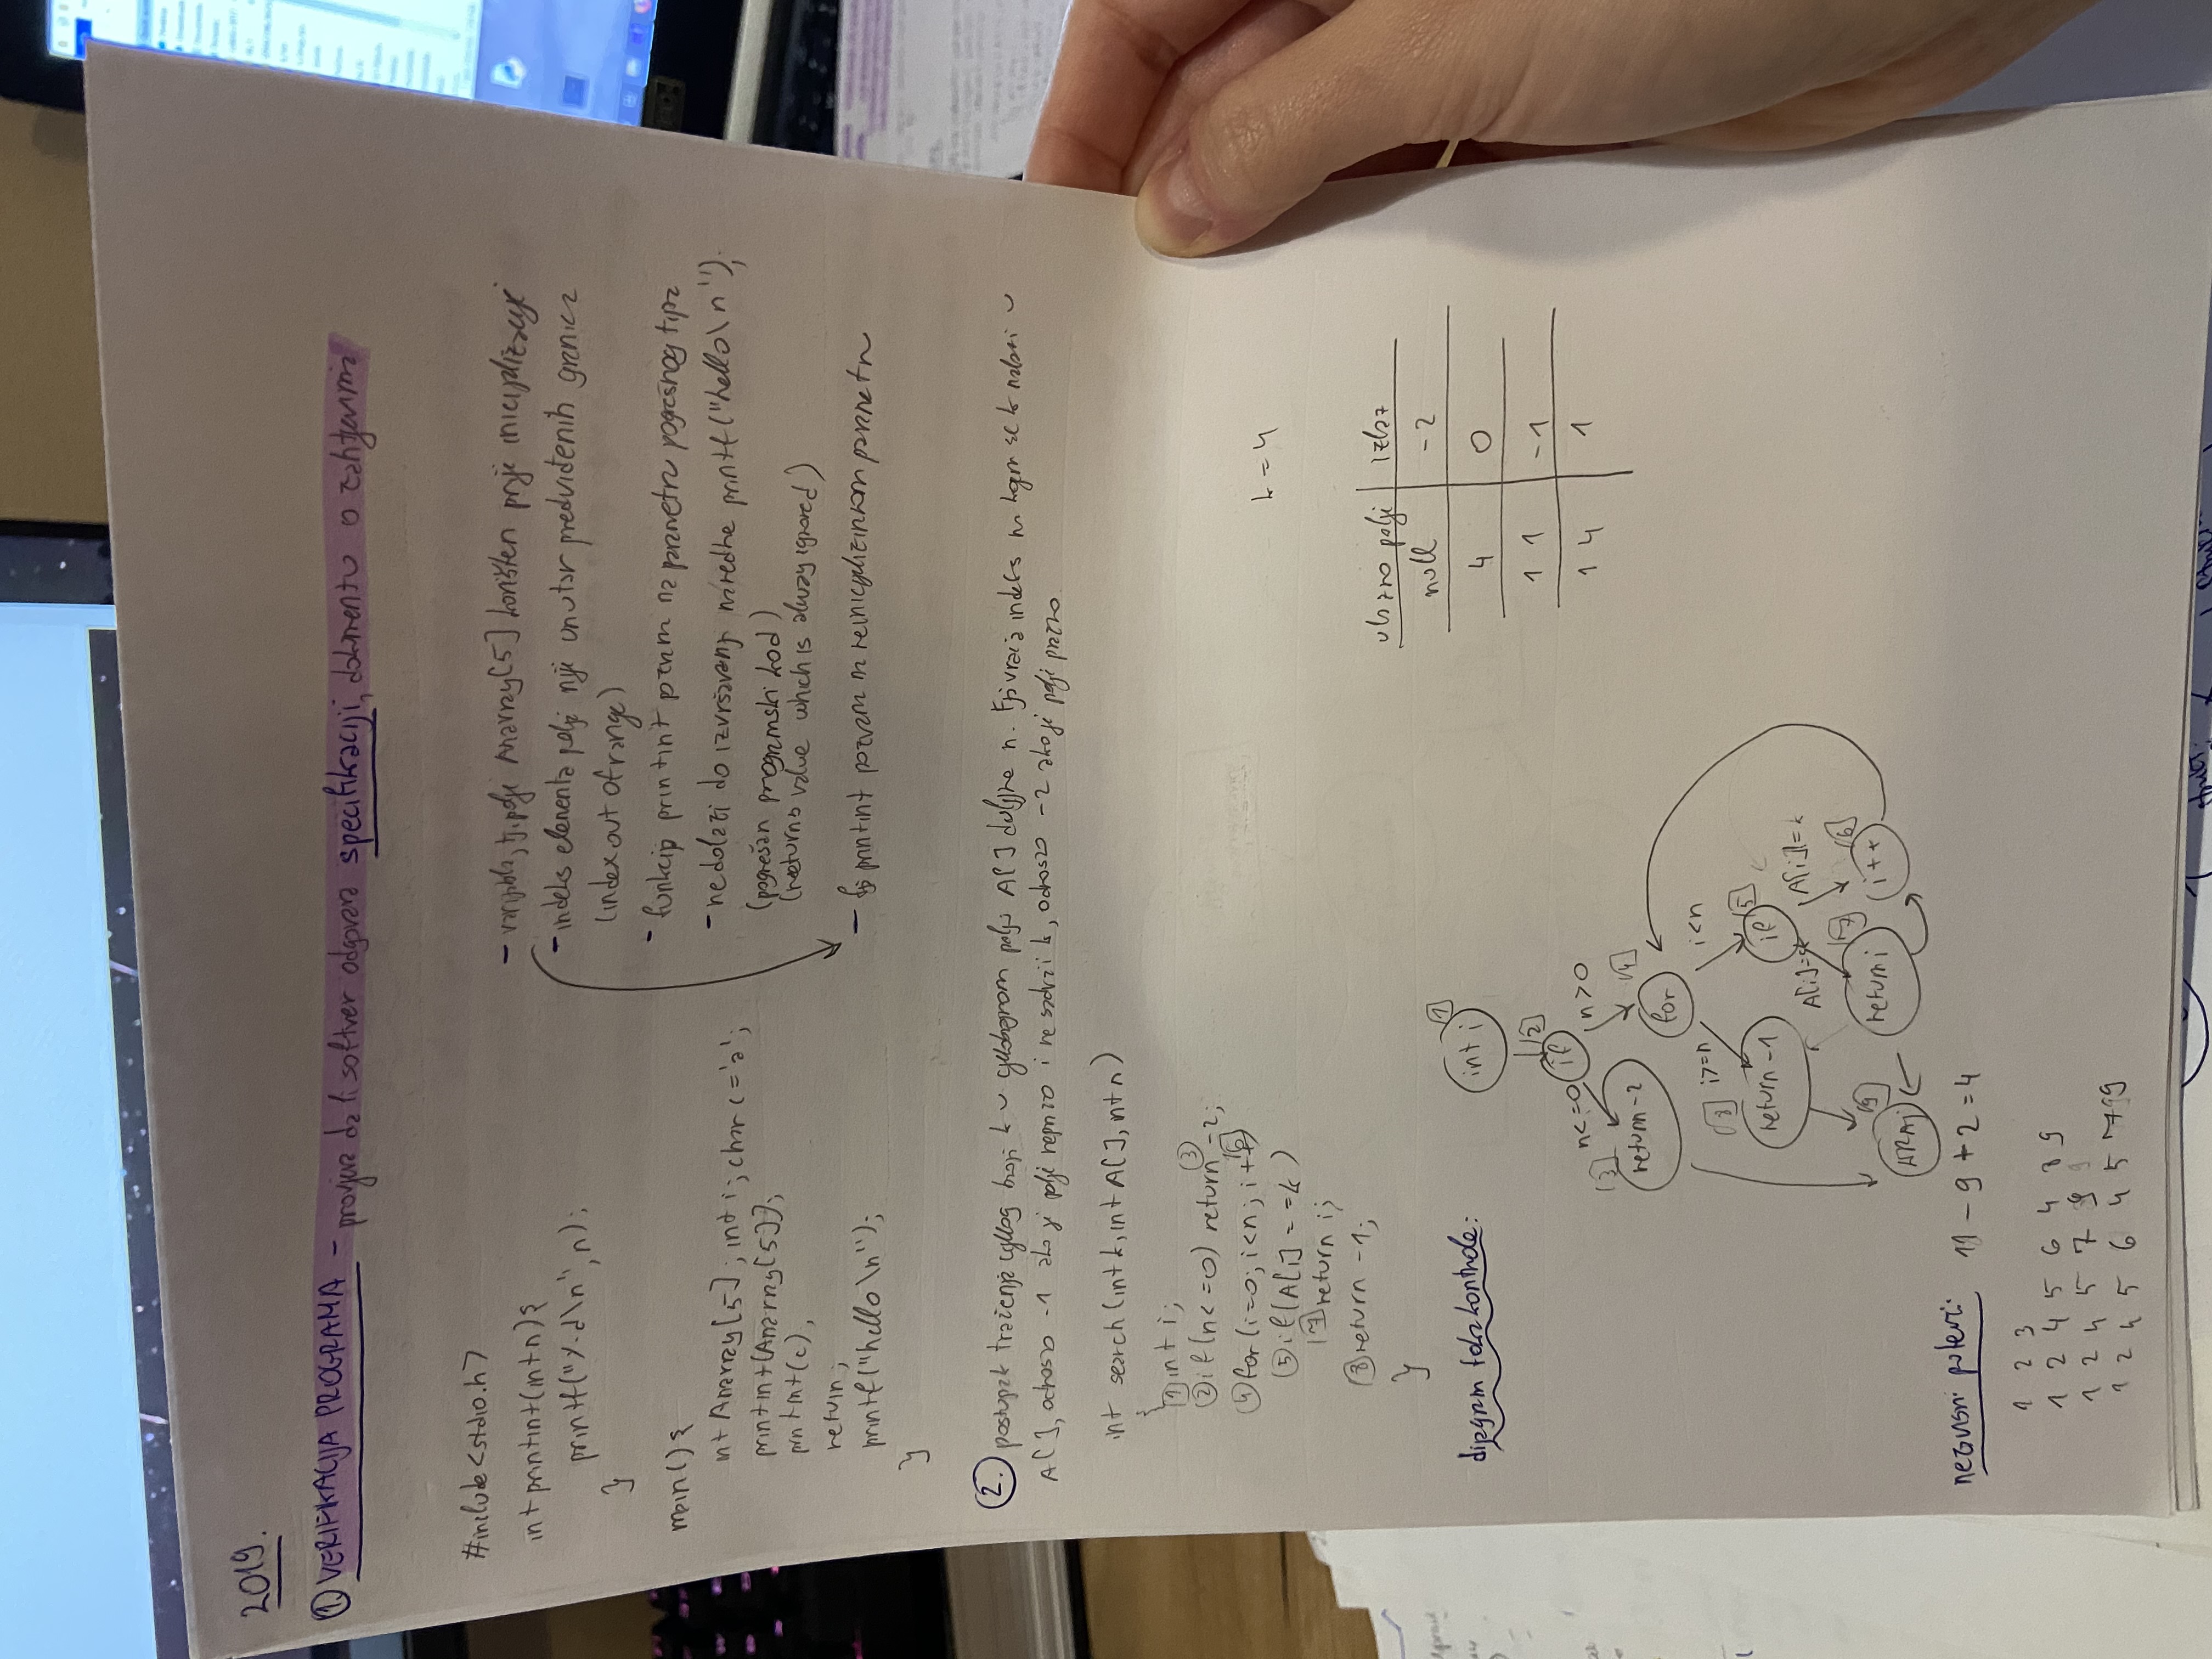 2019.
① VERIFIKACIJA PROGRAMA - provjera da li softver odgovara specifikaciji, dokumentu o zahtjevima
#include<stdio.h>
int printint(int n){
printf("%d\n", n);
}
main(){
int Anarray[5]; int i; char c='a';
printint(Anarray[5]);
printint(c);
return;
printf("hello\n");
}
- varijabla, tj. polje Anarray[5] korišten prije inicijalizacije
- indeks elementa polja nije unutar predviđenih granica
(index out of range)
- funkcija printint pozvana na parametru pogrešnog tipa
- ne dolazi do izvršavanja naredbe printf("hello\n");
(pogrešan programski kod)
(returns value which is always ignored)
- fja printint pozvana na neinicijaliziranom parametru
2. postupak traženja cijelog broja k u cjelobrojnom polju A[] duljine n. Fja vraća indeks na kojem se k nalazi u
A[], odnosno -1 ako je polje neprazno i ne sadrži k, odnosno -2 ako je polje prazno.
int search(int k, int A[], int n)
{
1 int i;
2 if(n<=0) return 3 -2;
4 for(i=0; i<n; i++) 6
5 if(A[i]==k)
7 return i;
8 return -1;
}
k=4
ulazno polje | izlaz
null | -2
4 | 0
1 1 | -1
1 4 | 1
dijagram toka kontrole:
int i 1
if 2
n<=0 n>0
3 return -2
for 4
i>=n i<n
8 return -1
if 5
A[i]=k A[i]!=k
return i 7
i++ 6
KRAJ 9
nezavisni putevi: 11-9+2=4
1 2 3
1 2 4 5 6 4 8 9
1 2 4 5 7 9
1 2 4 5 6 4 5 7 9